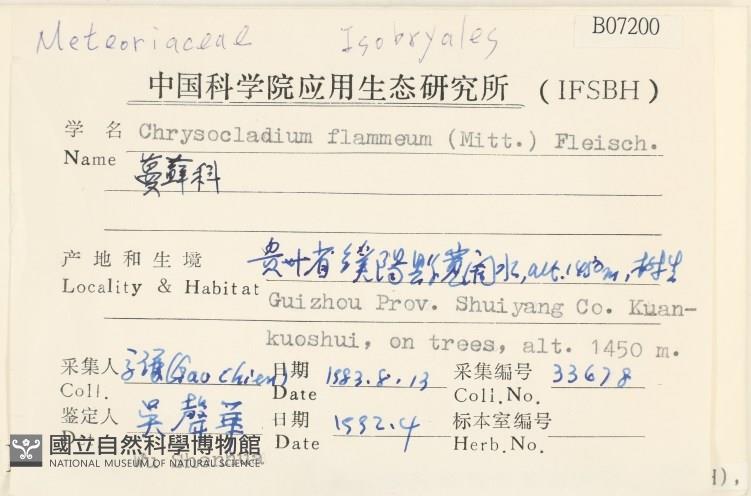 B07200
Meteoriaceae Isobryales
中国科学院应用生态研究所 (IFSBH)
学 名 Chrysocladium flammeum (Mitt.) Fleisch.
Name 蔓藓科
产地和生境 贵州省 阳县宽阔水, alt. 1450m, 树生
Locality & Habitat Guizhou Prov. Shuiyang Co. Kuan-
kuoshui, on trees, alt. 1450 m.
采集人 (Gao Chien) 日期 1983.8.13 采集编号 33678
Coll. Date Coll.No.
鉴定人 吴聲華 日期 1992.4 标本室编号
Date Herb.No.
國立自然科學博物館
NATIONAL MUSEUM OF NATURAL SCIENCE